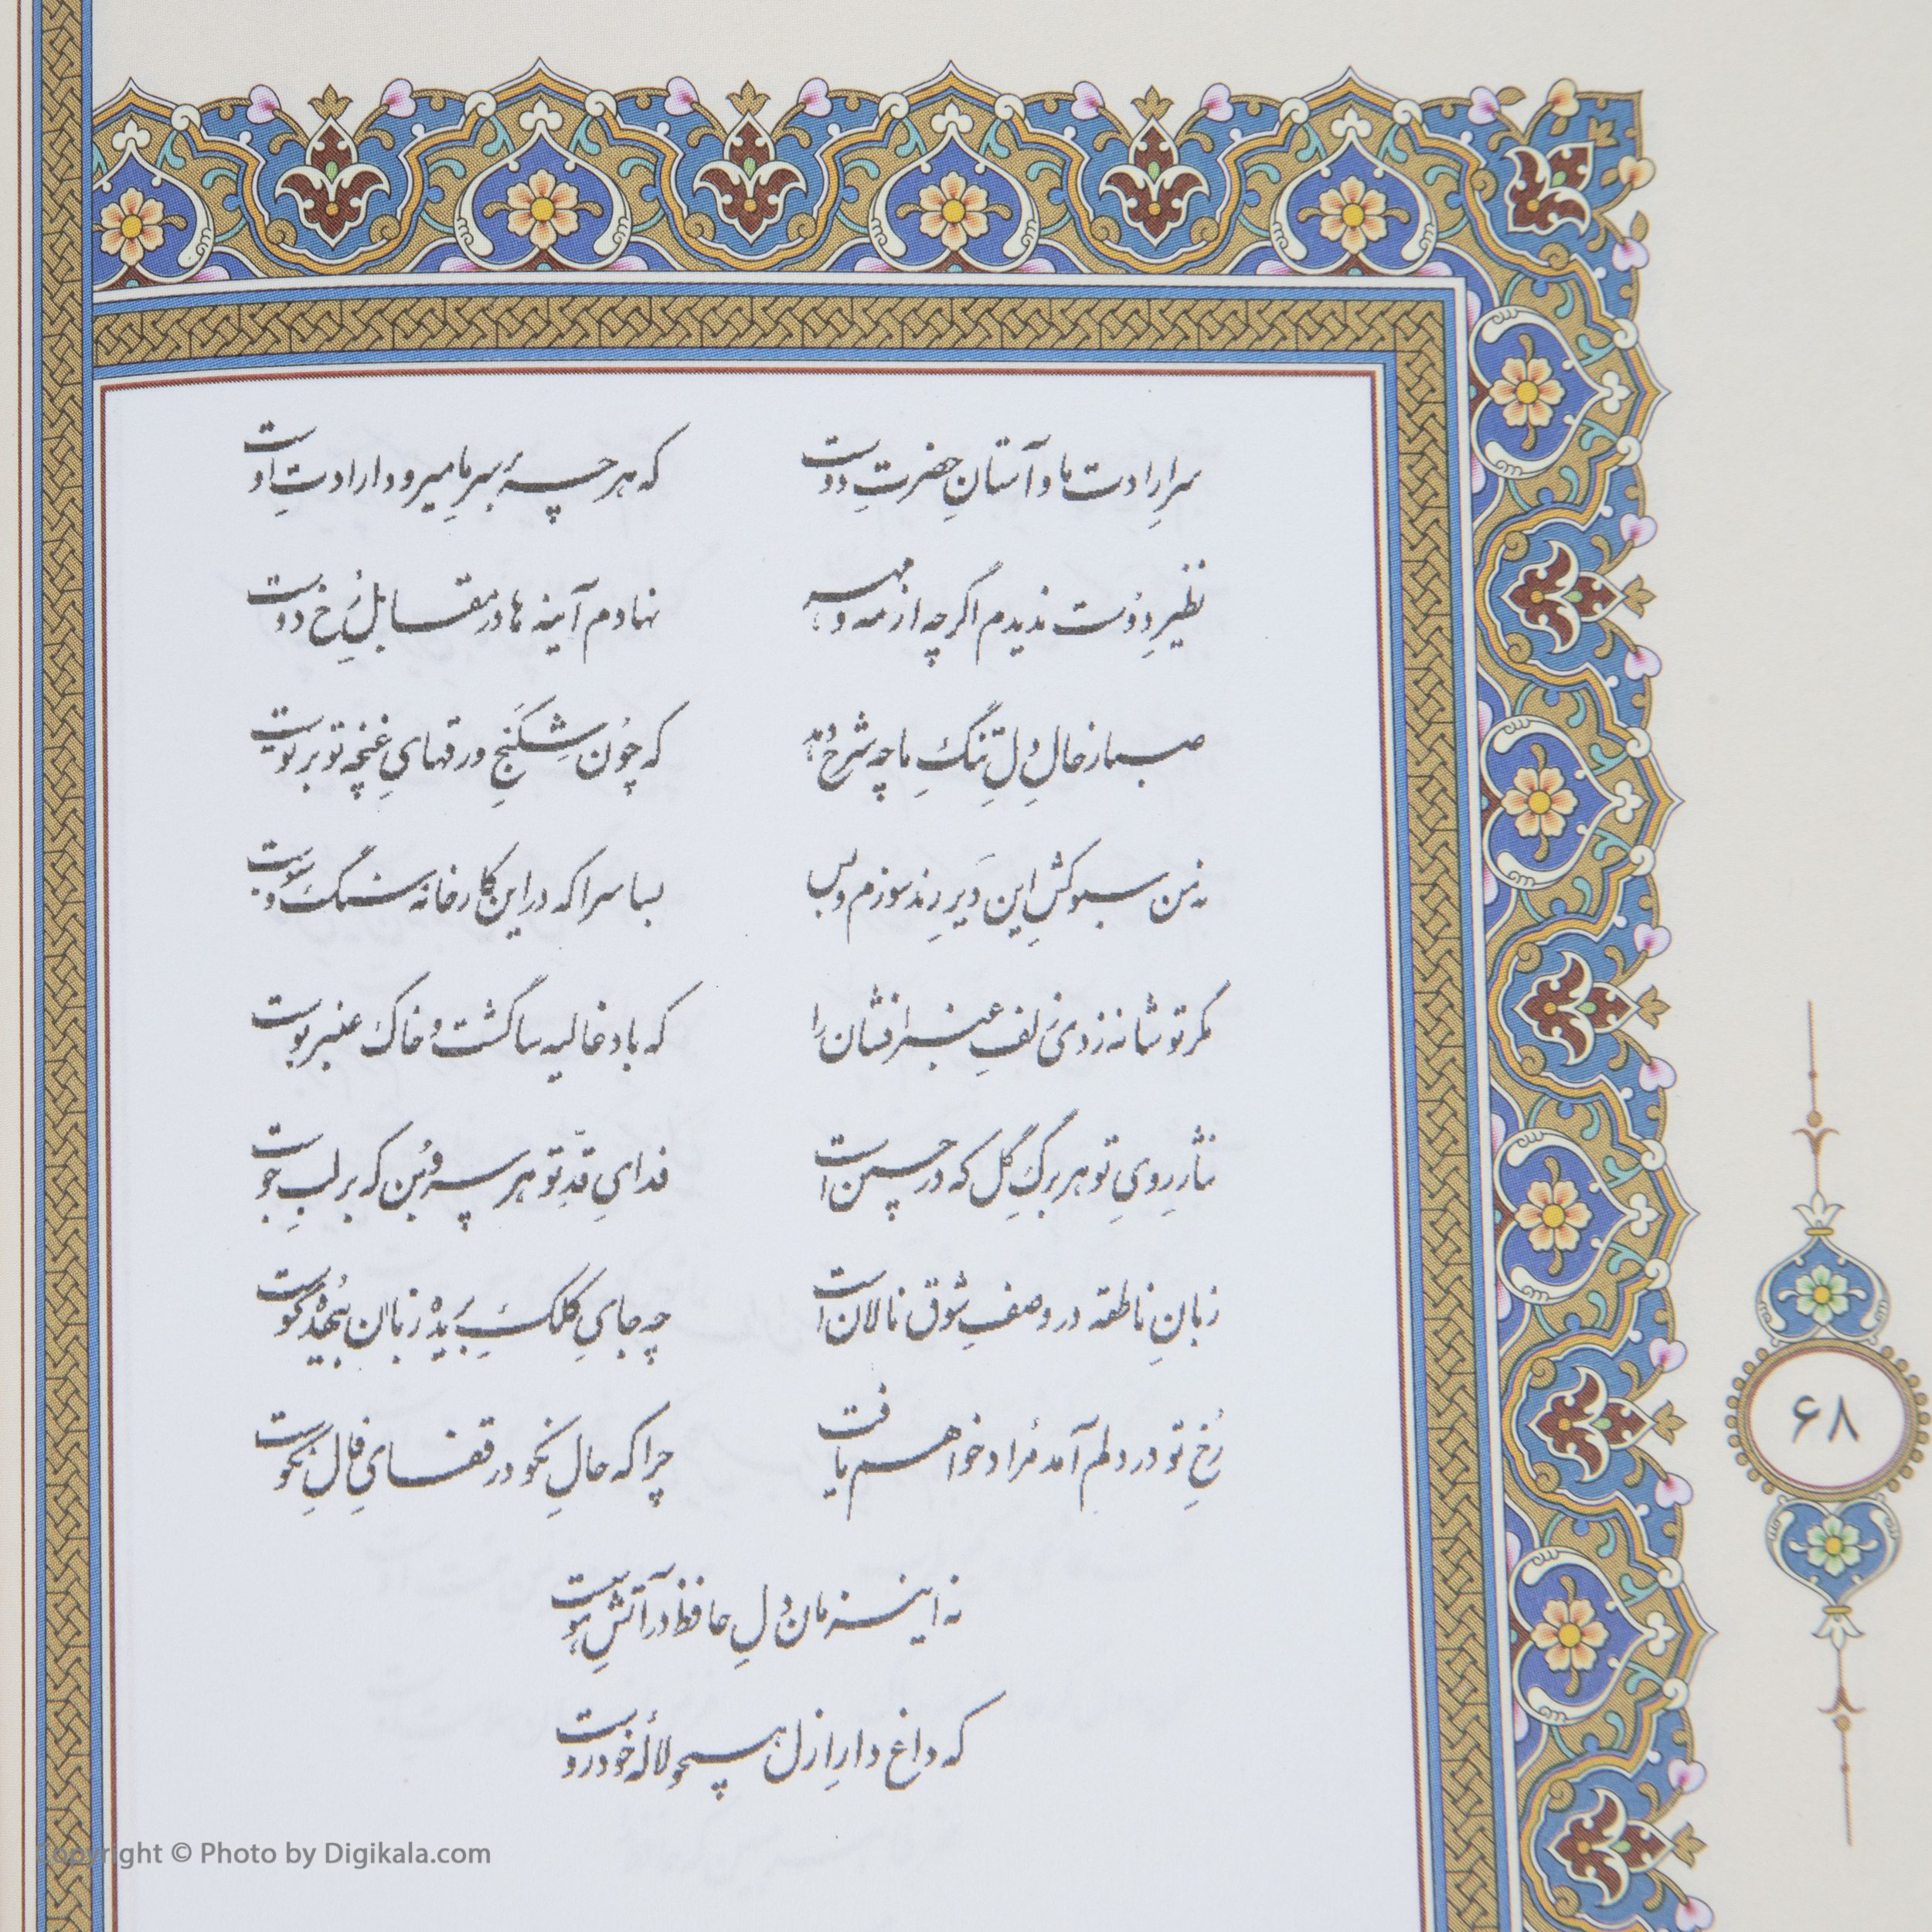 سرِ ارادت ما و آستانِ حضرتِ دوست که هر چه بر سرِ ما می‌رود ارادتِ اوست
نظیرِ دوست ندیدم اگر چه از مه و مهر نهادم آینه‌ها در مقابلِ رُخِ دوست
صبا ز حالِ دلِ تنگِ ما چه شرح دهد که چون شِکَنجِ ورقهایِ غنچه تو بر توست
نه من سبوکشِ این دَیرِ رند سوزم و بس بسا سرا که در این کارخانه سنگ و سبوست
مگر تو شانه زدی زلفِ عنبر افشان را که باد غالیه سا گشت و خاک عنبر بوست
نثارِ رویِ تو هر برگِ گل که در چمن است فدایِ قدِّ تو هر سروبُن که بر لبِ جوست
زبانِ ناطقه در وصفِ شوق نالان است چه جایِ کلکِ بریده زبان بیهُده گوست
رُخِ تو در دلم آمد مُراد خواهم یافت چرا که حالِ نکو در قفایِ فالِ نکوست
نه این زمان دلِ حافظ در آتشِ هوست
که داغ دارِ ازل همچو لالهٔ خودروست
۶۸
Copyright © Photo by Digikala.com